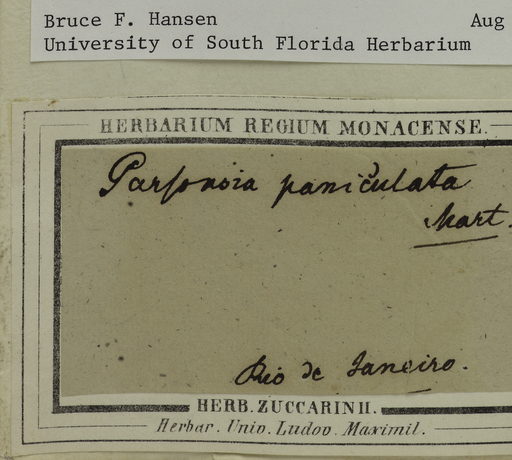 Bruce F. Hansen Aug
University of South Florida Herbarium
HERBARIUM REGIUM MONACENSE.
Parsonsia paniculata
Mart.
Rio de Janeiro.
HERB. ZUCCARINII.
Herbar. Univ. Ludov. Maximil.